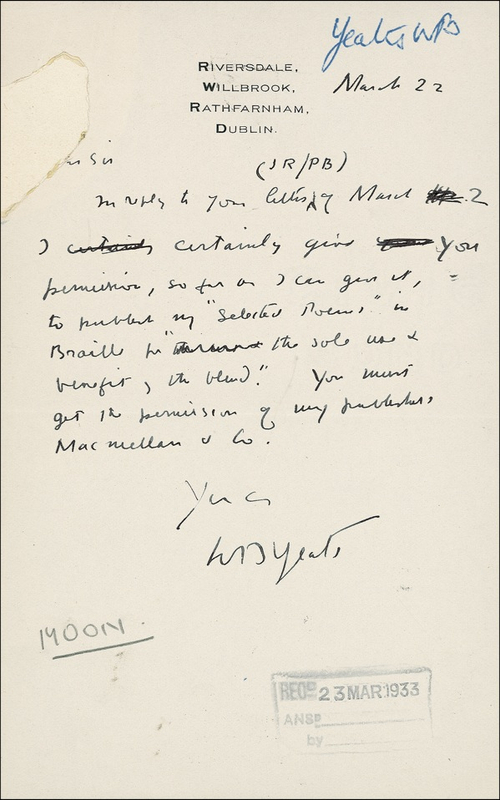 Yeats WB
RIVERSDALE,
WILLBROOK,
RATHFARNHAM,
DUBLIN.
March 22
Sir
(JR/PB)
In reply to your letter of March 2
I certainly give you
permission, so far as I can give it,
to publish my "Selected Poems" in
Braille for "the sole use &
benefit of the blind." You must
get the permission of my publishers
Macmillan & Co.
Yrs
WB Yeats
MOON.
RECD 23 MAR 1933
ANSD
by